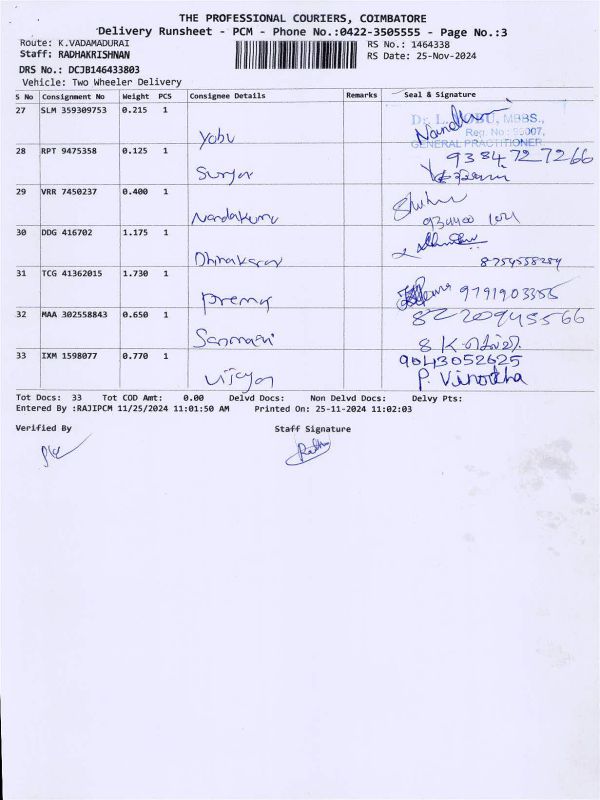 THE PROFESSIONAL COURIERS, COIMBATORE
Delivery Runsheet - PCM - Phone No.:0422-3505555 - Page No.:3
Route: K.VADAMADURAI
RS No.: 1464338
Staff: RADHAKRISHNAN
RS Date: 25-Nov-2024
DRS No.: DCJB146433803
Vehicle: Two Wheeler Delivery
S No Consignment No Weight PCS Consignee Details Remarks Seal & Signature
27 SLM 359309753 0.215 1
Yobu
Dr. L. MBBS.,
Reg. No:
GENERAL PRACTITIONER
28 RPT 9475358 0.125 1
Surya
9384727266
29 VRR 7450237 0.400 1
Nandakumar
30 DDG 416702 1.175 1
Dhinakaran
8754558284
31 TCG 41362015 1.730 1
prema
9791903356
32 MAA 302558843 0.650 1
8220945566
33 IXM 1598077 0.770 1
vijayan
9043052625
P. Vinodha
Tot Docs: 33 Tot COD Amt: 0.00 Delvd Docs: Non Delvd Docs: Delvy Pts:
Entered By :RAJIPCM 11/25/2024 11:01:50 AM Printed On: 25-11-2024 11:02:03
Verified By Staff Signature
Radha